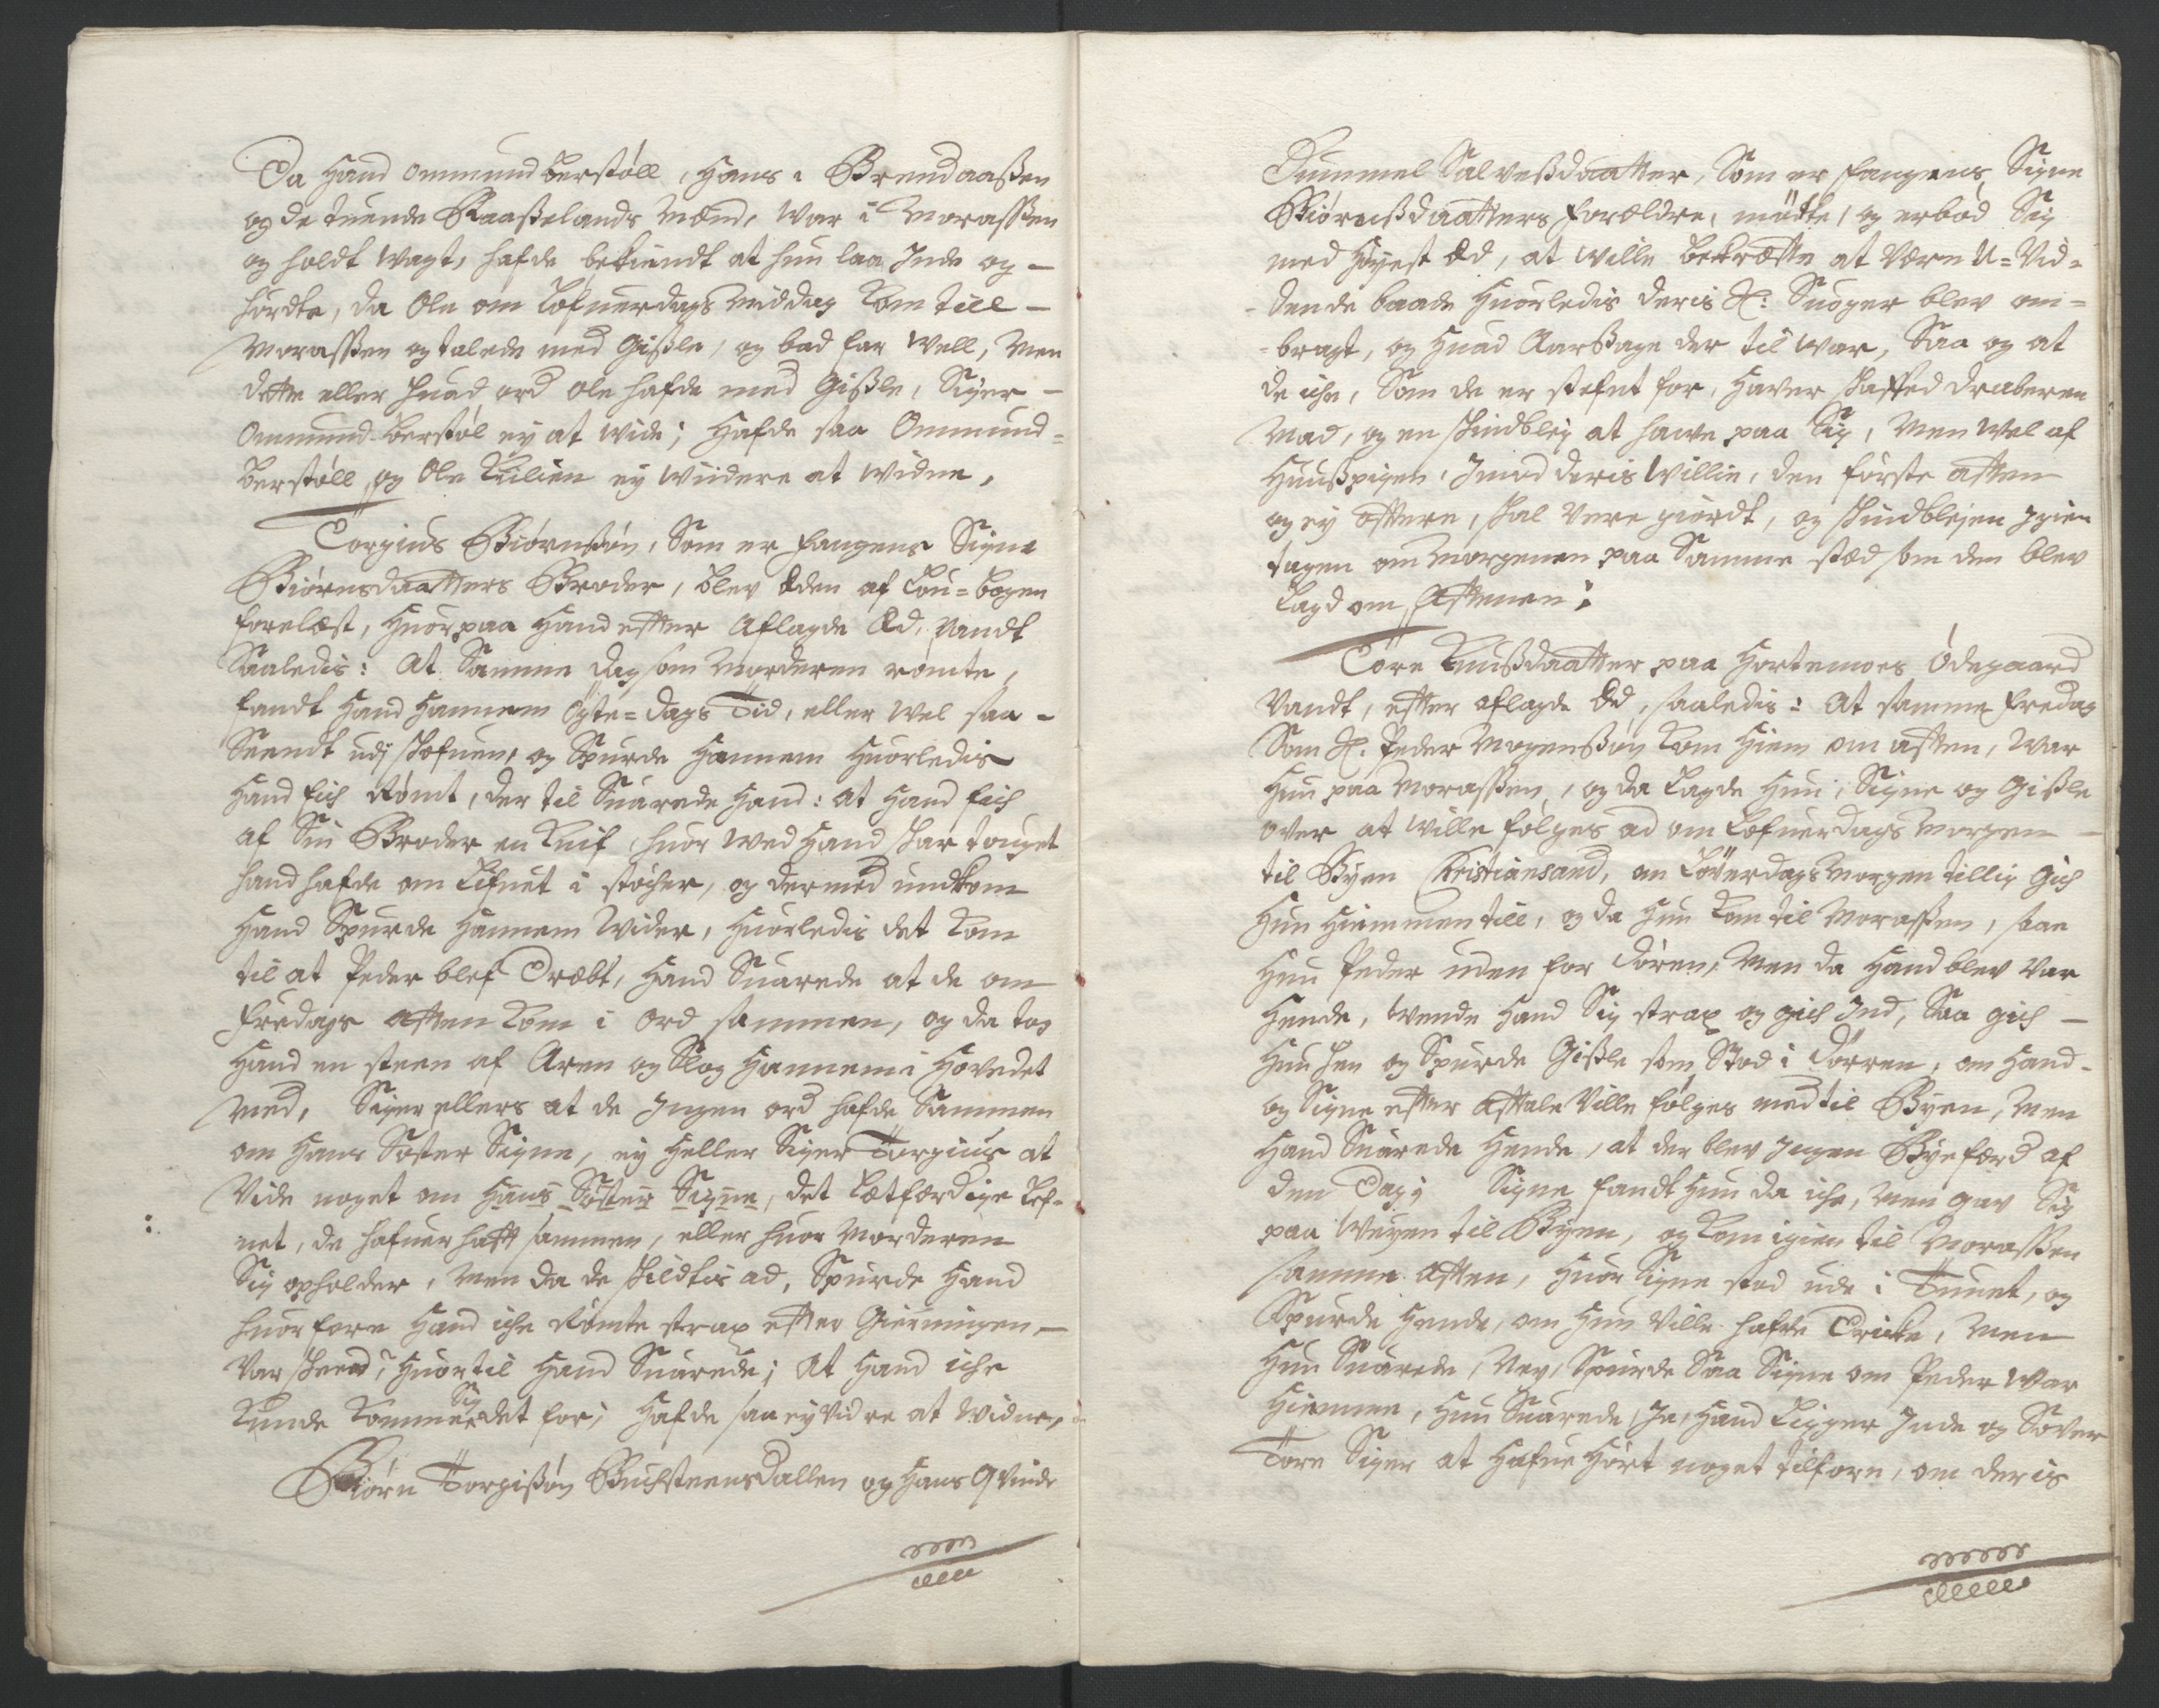 Da Hand Ommund Berstöll, Hans i Brendaaßen
og de tuende Raaßelands Mend, War i Moraßßen
og holdt Wagt, hafde bekiendt at hun laa Inde og
hördte, da Ole om Löfuerdags Middag kom till
Moraßßen og talede med Gißle, og bad far Well, Men
dette eller huad ord Ole hafde med Gißle, Siger
Ommund Berstöl ey at wide; Hafde saa Ommund
Berstöll, og Ole Kilien ey widere at widne,
Torgius Biörnßön, Som er fangens Signe
Biörnsdaatters Broder, blev Eden af Lou=bogen
forelæst, Huorpaa Hand efter Aflagde Ed, Vandt
Saaledis: At Samme dag som Morderen römte,
fandt Hand Hannem Ögte=Dags Tid, eller Wel saa
Seendt udj skofuen, og Spurde Hannem Huorledis
Hand fich Römt, der til Suarede Hand: at Hand fich
af Sin Broder en Knif, huor wed Hand skar touget
hand hafde om Lifuet i stöcher, og dermed undkom
Hand Spurde Hannem Wider, Huorledis det kom
til at Peder blef Dræbt, Hand Suarede at de om
Fredags aften kom i ord sammen, og da tog
Hand en steen af Aren og Slog Hannem i Hovedet
Med, Siger ellers at de Ingen ord hafde Sammen
om Hans Söster Signe, ey Heller Siger Torgius at
Vide noget om Hans Söster Signe, det Lætferdige Lef=
net, de hafuer haft sammen, eller huor Morderen
Sig opholder, Men da de skildtis ad, Spurde Hand
huorfore Hand iche Römte strax efter Gierningen
Var skeed? Huortil Hand Suarede; At Hand iche
Sig
kunde komme det for; Hafde saa ey vidre at Widne,
Biörn Torgißön Buchsteensdallen og Hans Qvinde
Gummel Salveßdaatter, Som er fangens Signe
Biörnßdaatters forældre, mödte, og erböd Sig
med Höyest Ed, at Wille bekræfte at Være U=Vid=
dende baade Huorledis deris Sl: Suoger blev om=
bragt, og Huad Aarßage der til War, Saa og at
de iche, Som de er stefnt for, Haver skaffed draberen
Mad, og en skindbley at hawe paa Sig, Men Wel af
Huußpigen, Imod deris Willie, den förste aften
og ey oftere, skal Vere giordt, og skindblejen Igien
tagen om Morgenen paa Samme stæd som den blev
Lagd om Aftenen;
Töre Knußdaatter paa Hortemoes Ödegaard
Vandt, efter aflagde Ed, saaledis: At samme Fredag
Som Sl. Peder Mogenßön kom Hiem om aften, War
Hun paa Moraßßen, og da Lagde Hun, Signe og Gißle
over at wille fölges ad om Lofuerdags Morgen
til Byen Christiansand, om Löverdags Morgen tillig gich
Hun Hiemmen till, og da Hun kom til Moraßßen, saae
Hun Peder uden for Dören, Men da Hand blev Var
Hende, Wende Hand Sig strax og gich Ind, Saa gich
Hun hen og Spurde Gißle som Stod i Dörren, om Hand
og Signe efter Aftale Ville fölges med til Byen, Men
Hand Suarede Hende, at der blev Ingen Byeferd af
den Dag; Signe fandt Hun da iche, Men gav Sig
paa Weyen til Byen, og kom igien til Moraßßen
samme Aften, Huor Signe stod ude i Tunet, og
Spurde Hende, om Hun Ville hafve Dricke, Men
Hun Suarede, Ney, Spurde Saa Signe om Peder War
Hiemme, Hun Suarede, Ja, Hand Ligger Inde og Söver
Töre Siger at Hafue Hört noget tilforn, om deris